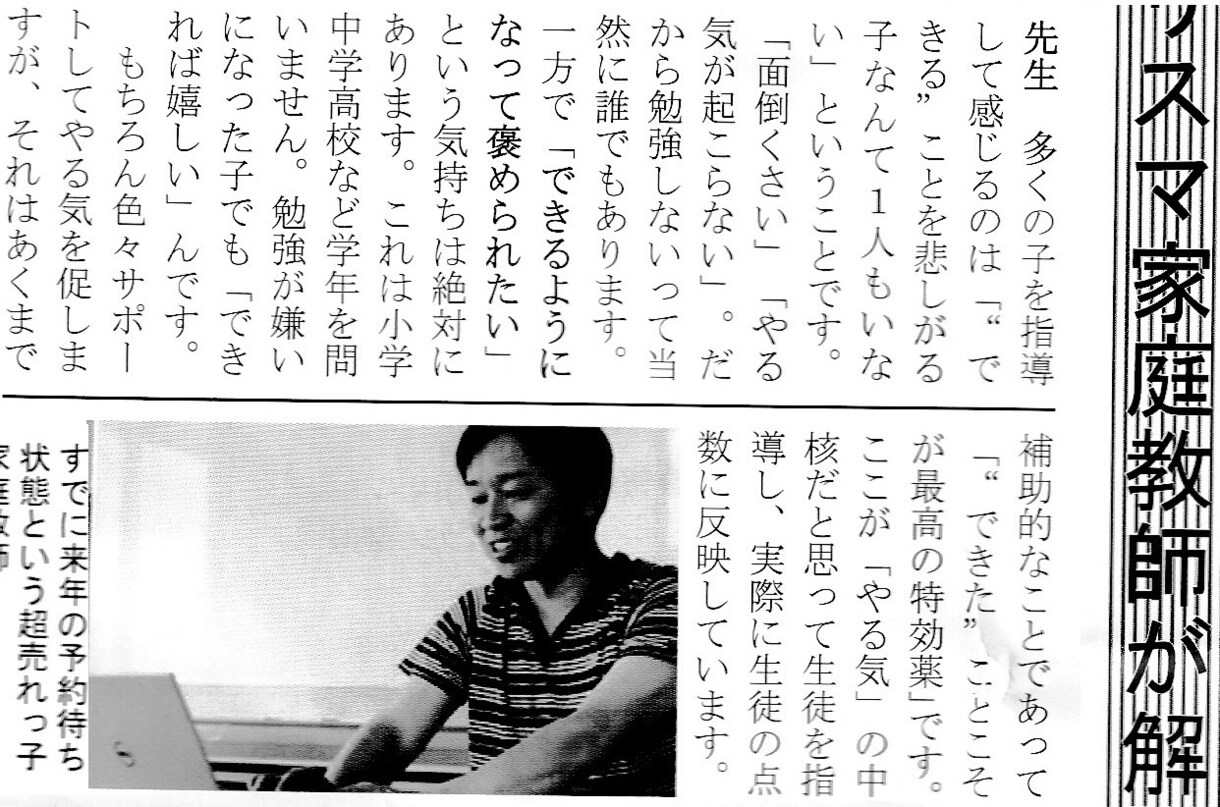 リスマ家庭教師が解
先生　多くの子を指導
して感じるのは「“で
きる”ことを悲しがる
子なんて1人もいな
い」ということです。
「面倒くさい」「やる
気が起こらない」。だ
から勉強しないって当
然に誰でもあります。
一方で「できるように
なって褒められたい」
という気持ちは絶対に
あります。これは小学
中学高校など学年を問
いません。勉強が嫌い
になった子でも「でき
れば嬉しい」んです。
もちろん色々サポー
トしてやる気を促しま
すが、それはあくまで
補助的なことであって
「“できた”ことこそ
が最高の特効薬」です。
ここが「やる気」の中
核だと思って生徒を指
導し、実際に生徒の点
数に反映しています。
すでに来年の予約待ち
状態という超売れっ子
家庭教師